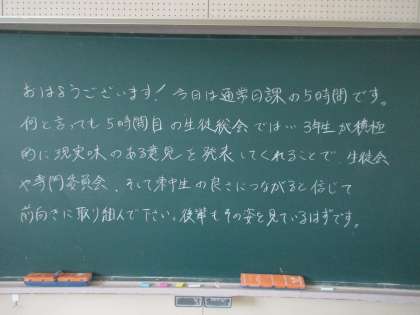 おはようございます!今日は通常日課の5時間です。
何と言っても5時間目の生徒総会では…3年生が積極
的に現実味のある意見を発表してくれることで、生徒会
や専門委員会、そして東中生の良さにつながると信じて
前向きに取り組んで下さい。後輩もその姿を見ているはずです。